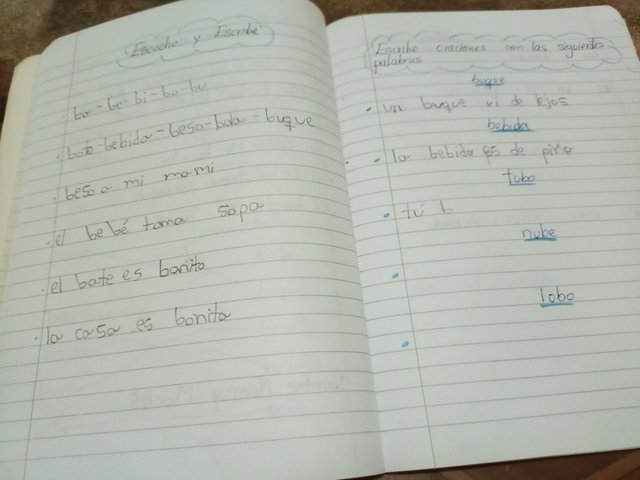 Escucho y Escribe
ba - be - bi - bo - bu
bate - bebida - beso - bola - buque
beso a mi mami
el bebé toma sopa
el bate es bonito
la casa es bonita
Escribe oraciones con las siguientes
palabras
buque
un buque vi de lejos
bebida
la bebida es de piña
tubo
tú b
nube
lobo